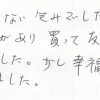 ない包みでした
があり 買って友
した。少し幸福
した。